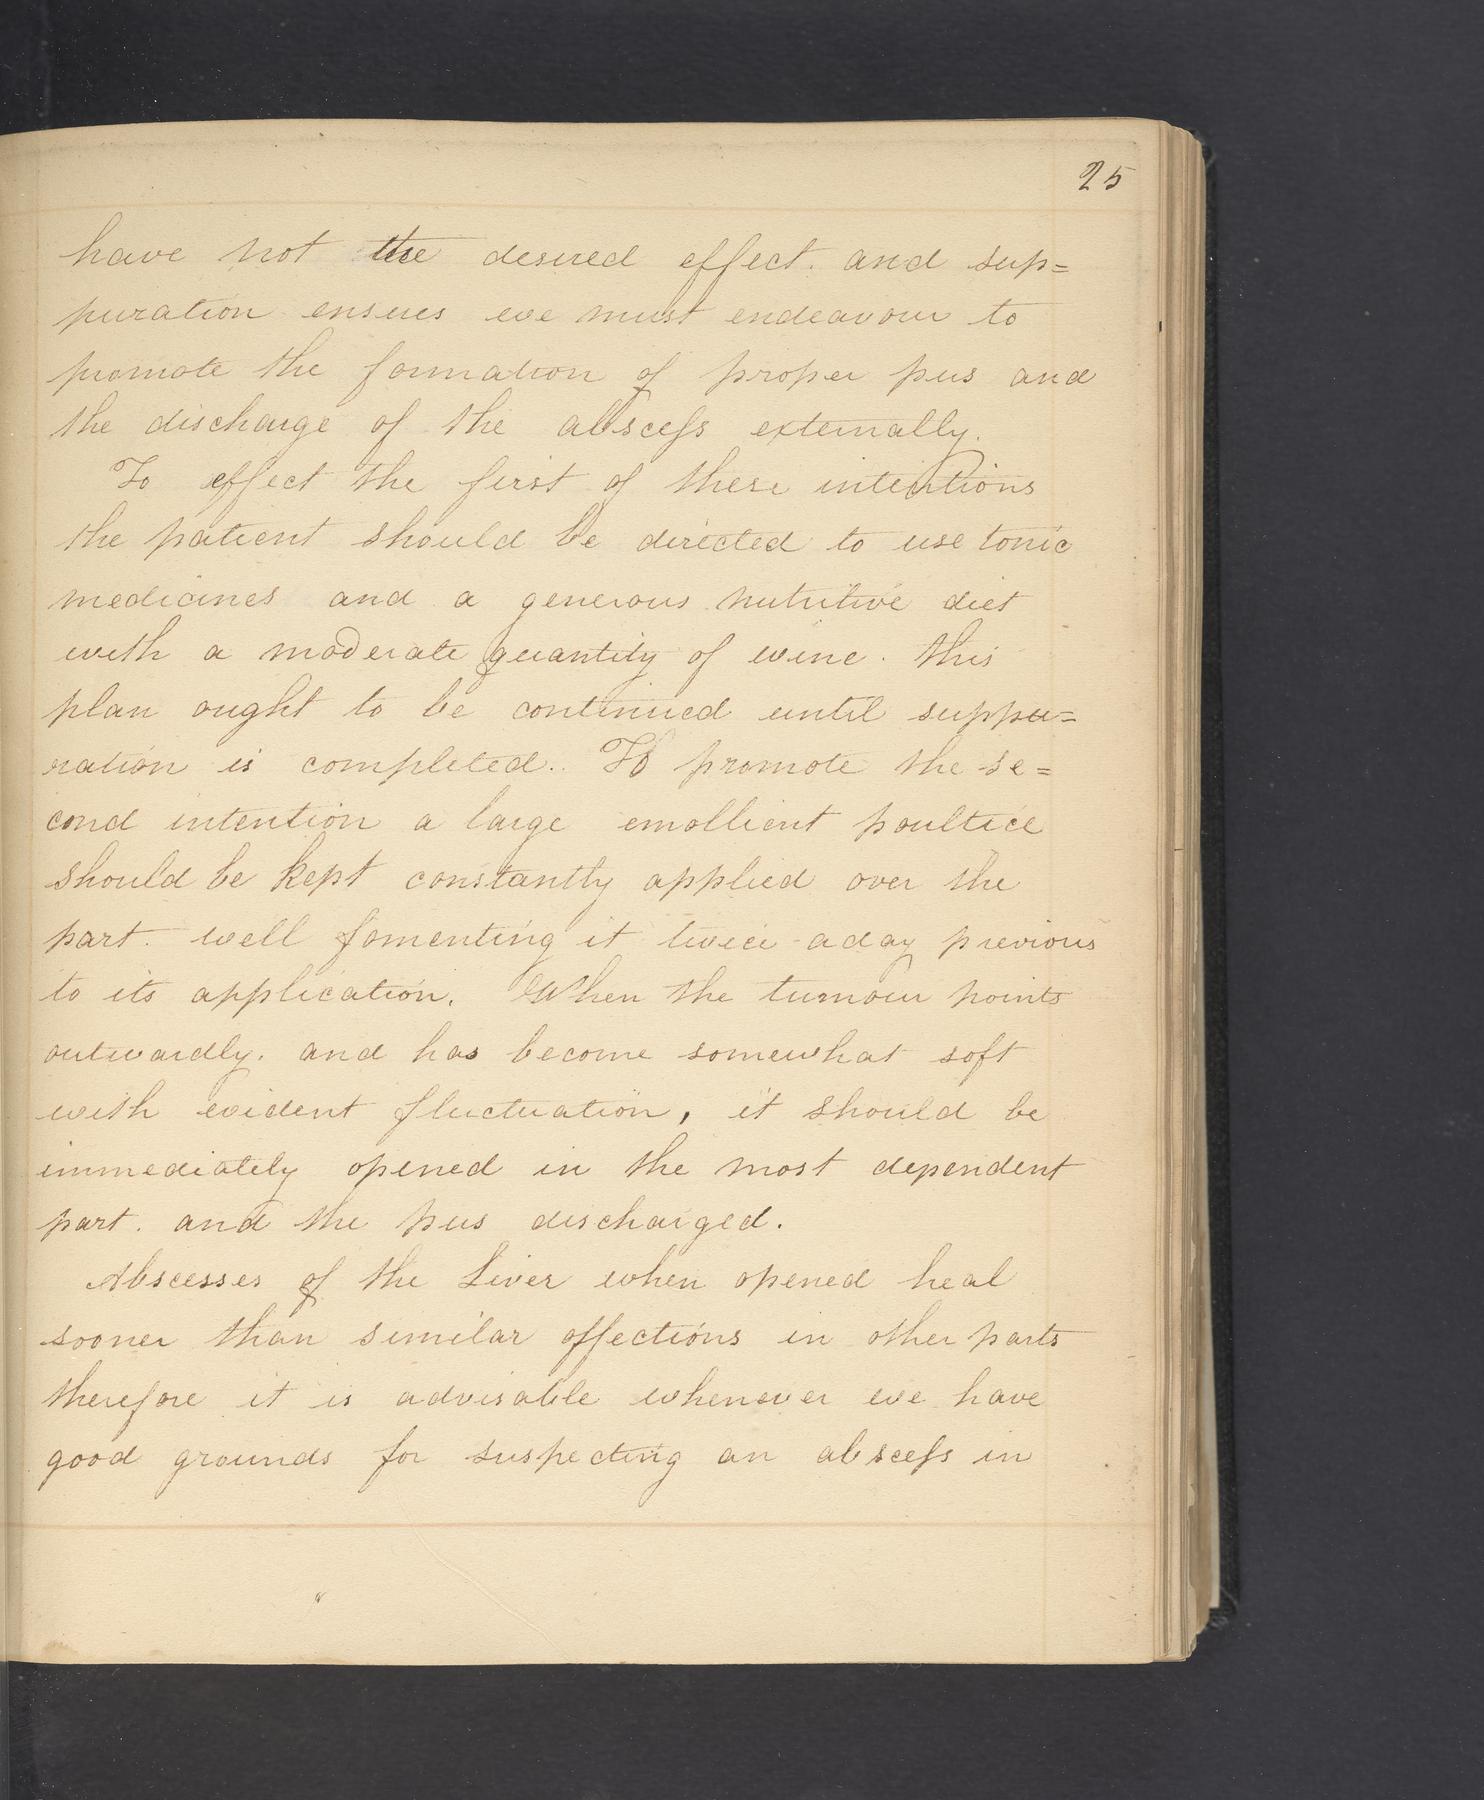 25
have not the desired effect. and sup=
puration ensues we must endeavour to
promote the formation of proper pus and
the discharge of the abscess externally.
To effect the first of these intentions
the patient should be directed to use tonic
medicines and a generous nutritive diet
with a moderate quantity of wine. this
plan ought to be continued until suppu=
ration is completed. To promote the se=
cond intention a large emollient poultice
should be kept constantly applied over the
part. well fomenting it twice a day previous
to its application. When the tumour points
outwardly. and has become somewhat soft
with evident fluctuation, it should be
immediately opened in the most dependent
part. and the pus discharged.
Abscesses of the Liver when opened heal
sooner than similar affections in other parts
therefore it is advisable whenever we have
good grounds for suspecting an abscess in